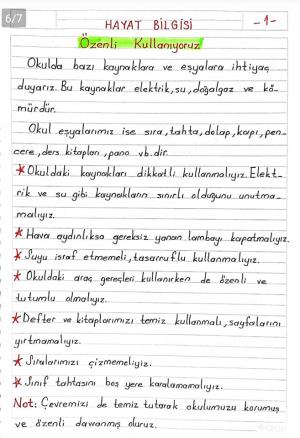 6/7
HAYAT BİLGİSİ
-1-
Özenli Kullanıyoruz
Okulda bazı kaynaklara ve eşyalara ihtiyaç
duyarız. Bu kaynaklar elektrik, su, doğalgaz ve kö-
mürdür.
Okul eşyalarımız ise sıra, tahta, dolap, kapı, pen-
cere, ders kitapları, pano vb. dir.
* Okuldaki kaynakları dikkatli kullanmalıyız. Elekt-
rik ve su gibi kaynakların sınırlı olduğunu unutma-
malıyız.
* Hava aydınlıksa gereksiz yanan lambayı kapatmalıyız.
* Suyu israf etmemeli, tasarruflu kullanmalıyız.
* Okuldaki araç gereçleri kullanırken de özenli ve
tutumlu olmalıyız.
* Defter ve kitaplarımızı temiz kullanmalı, sayfalarını
yırtmamalıyız.
* Sıralarımızı çizmemeliyiz.
* Sınıf tahtasını boş yere karalamamalıyız.
Not: Çevremizi de temiz tutarak okulumuzu korumuş
ve özenli davranmış oluruz.